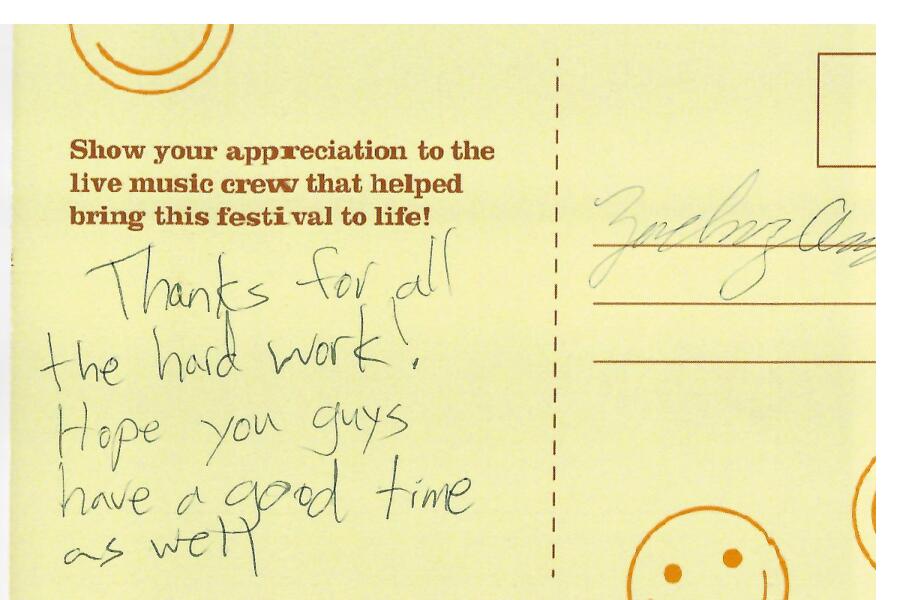 Show your appreciation to the
live music crew that helped
bring this festival to life!
Thanks for all
the hard work!
Hope you guys
have a good time
as well